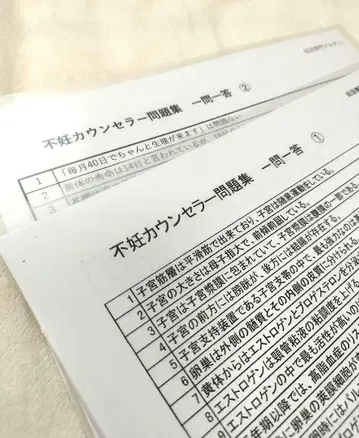 不妊カウンセラー問題集 一問一答 ②
1 「毎月40日でちゃんと生理が来ます」は問題ない
2 黄体の寿命は14日と言われているが、
3
不妊カウンセラー問題集 一問一答 ①
1 子宮筋層は平滑筋で出来ており、子宮は随意運動している。
2 子宮の大きさは母子指大で、前傾前屈している。
3 子宮は子宮漿膜に包まれていて、子宮漿膜は腹膜の一部である
4 子宮の前方には膀胱が、後方には結腸が存在する。
5 子宮支持装置である子宮支帯の中で、最も強力なのは
6 卵巣は外側の髄質とその内側の皮質に分けられ
7 黄体からはエストロゲンとプロゲステロンが
8 エストロゲンは頸管粘液の粘稠度を上げる
9 エストロゲンの中で最も活性が高いの
年期以降では、高脂血症の
に卵巣の莢膜細胞
時にはパ